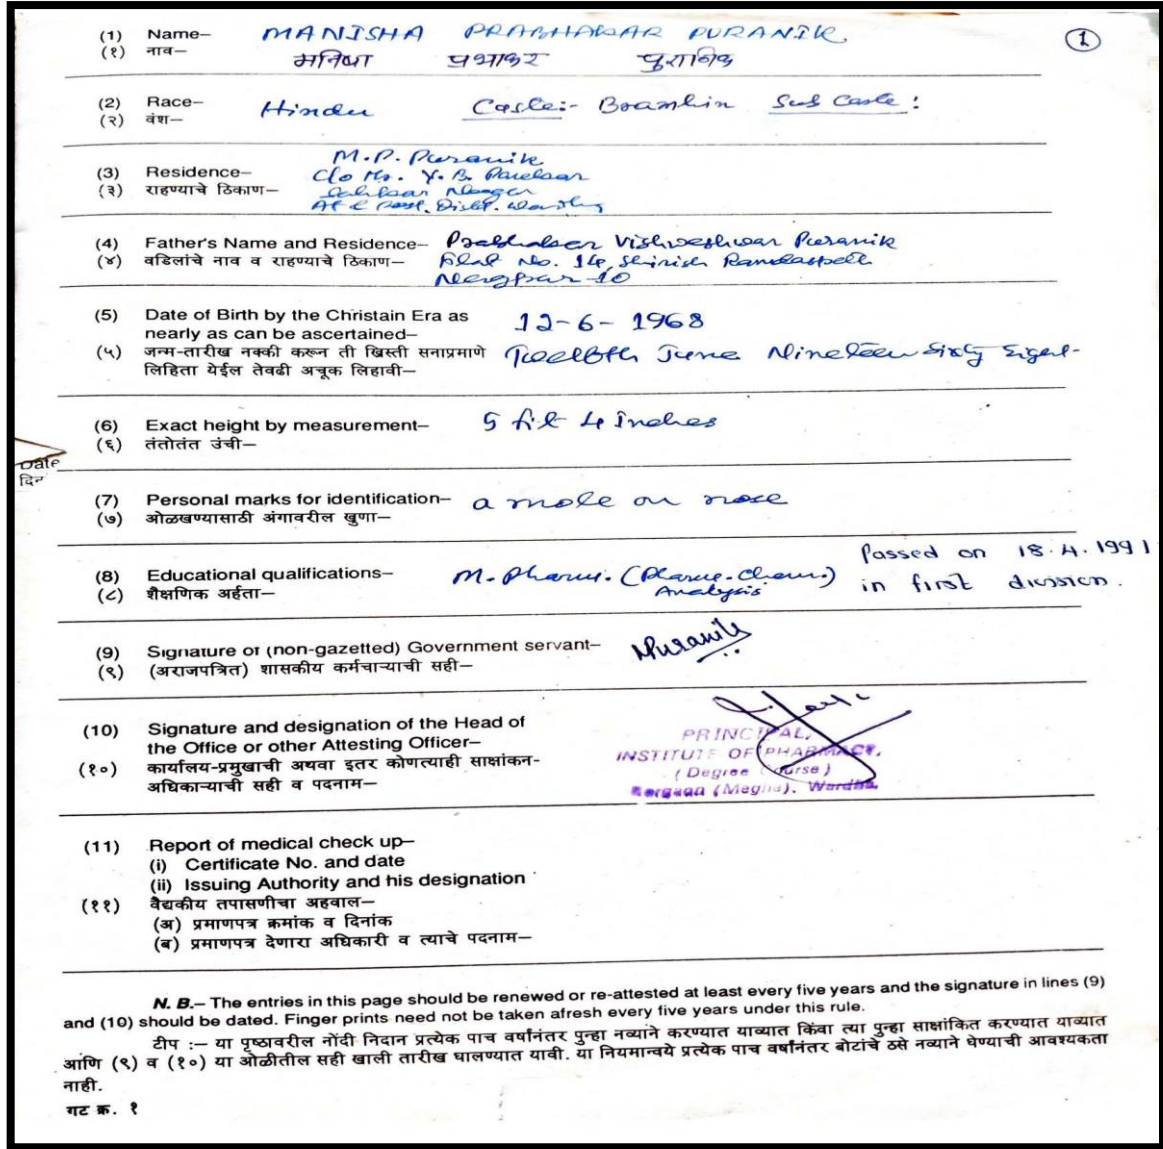 (1) Name– MANISHA PRABHAKAR PURANIK. 1
(१) नाव– मनिषा प्रभाकर पुराणिक
(2) Race– Hindu Caste:- Bramhin Sub Caste:
(२) वंश–
M.P. Puranik
(3) Residence– C/o Mr. Y. B.
(३) राहण्याचे ठिकाण– Nagar
At & Post. Distt. Wardha
(4) Father's Name and Residence– Prabhakar Vishweshwar Puranik
(४) वडिलांचे नाव व राहण्याचे ठिकाण– Flat No. 14, Shirish Ramdaspeth
Nagpur-10
(5) Date of Birth by the Christain Era as
nearly as can be ascertained– 12-6-1968
(५) जन्म-तारीख नक्की करून ती ख्रिस्ती सनाप्रमाणे June Nineteen Sixty Eight-
लिहिता येईल तेवढी अचूक लिहावी–
(6) Exact height by measurement– 5 fit 4 Inches
(६) तंतोतंत उंची–
Date
(7) Personal marks for identification– a mole on nose
(७) ओळखण्यासाठी अंगावरील खुणा–
Passed on 18.4.1991
(8) Educational qualifications– M. Pharm. (Pharm. Chem.) in first division.
(८) शैक्षणिक अर्हता– Analysis
(9) Signature of (non-gazetted) Government servant– MPuranik
(९) (अराजपत्रित) शासकीय कर्मचाऱ्याची सही–
(10) Signature and designation of the Head of
the Office or other Attesting Officer–
(१०) कार्यालय-प्रमुखाची अथवा इतर कोणत्याही साक्षांकन-
अधिकाऱ्याची सही व पदनाम–
PRINCIPAL,
INSTITUTE OF PHARMACY,
(Degree Course)
Borgaon (Meghe), Wardha.
(11) Report of medical check up–
(i) Certificate No. and date
(ii) Issuing Authority and his designation
(११) वैद्यकीय तपासणीचा अहवाल–
(अ) प्रमाणपत्र क्रमांक व दिनांक
(ब) प्रमाणपत्र देणारा अधिकारी व त्याचे पदनाम–
N. B.– The entries in this page should be renewed or re-attested at least every five years and the signature in lines (9)
and (10) should be dated. Finger prints need not be taken afresh every five years under this rule.
टीप :– या पृष्ठावरील नोंदी निदान प्रत्येक पाच वर्षांनंतर पुन्हा नव्याने करण्यात याव्यात किंवा त्या पुन्हा साक्षांकित करण्यात याव्यात
आणि (९) व (१०) या ओळीतील सही खाली तारीख घालण्यात यावी. या नियमान्वये प्रत्येक पाच वर्षांनंतर बोटांचे ठसे नव्याने घेण्याची आवश्यकता
नाही.
गट क्र. १